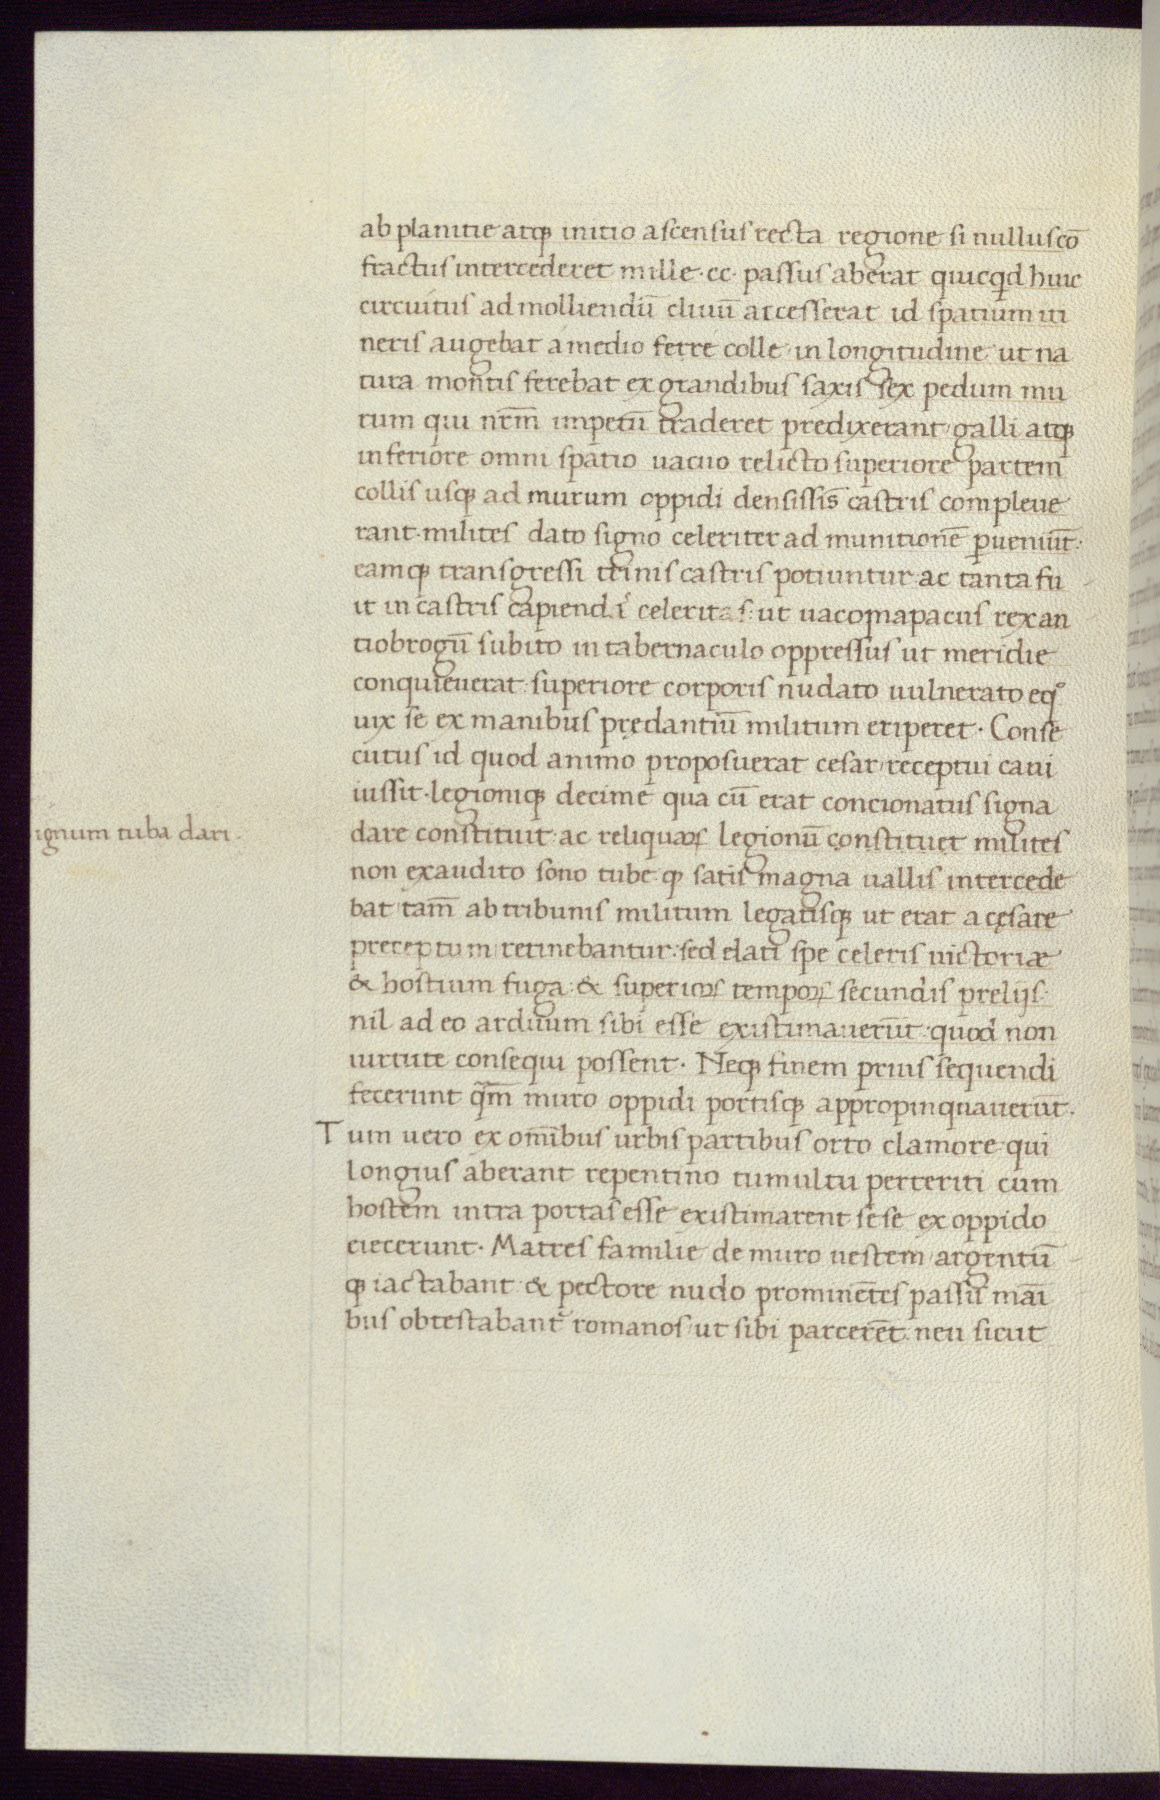 ab planitie atqꝫ initio ascensus recta regione si nullus cō
fractus intercederet mille · cc · passus aberat quicqd huic
circuitus ad molliendū cliuū accesserat id spatium iti
neris augebat a medio ferre colle in longitudine ut na
tura montis ferebat ex grandibus saxis sex pedum mu
rum qui nrm̄ impetū traderet predixerant galli atqꝫ
inferiore omni spatio uacuo relicto superiore partem
collis usqꝫ ad murum oppidi densissis̄ castris compleue
rant · milites dato signo celeriter ad munitionē ꝑueniūt :
eamqꝫ transgressi trinis castris potiuntur ac tanta fu
it in castris capiendi celeritas : ut uacomapacus rex an
tiobrogū subito in tabernaculo oppressus ut meridie
conquieuerat superiore corporis nudato uulnerato eqͦ
uix se ex manibus prędantiū militum eriperet · Conse
cutus id quod animo proposuerat cesar receptui cani
iussit · legioniqꝫ decime qua cū erat concionatus signa
ignum tuba dari ·
dare constituit ac reliquaꝝ legionū constituet milites
non exaudito sono tube qꝫ satis magna uallis intercede
bat tam̄ ab tribunis militum legatisqꝫ ut erat a cęsare
preceptum retinebantur : sed elati spe celeris uictoriæ
& hostium fuga & superioꝝ tempoꝝ secundis prelijs
nil ad eo arduum sibi esse existimauerūt quod non
uirtute consequi possent · Neqꝫ finem prius sequendi
fecerunt qm̄ muro oppidi portisqꝫ appropinquauerūt ·
Tum uero ex om̄ibus urbis partibus orto clamore qui
longius aberant repentino tumultu perteriti cum
hostem intra portas esse existimarent sese ex oppido
eiecerunt · Matres familie de muro uestem argentū
qꝫ iactabant & pectore nudo prominētes passis māi
bus obtestabant᷑ romanos ut sibi parcerēt neu sicut